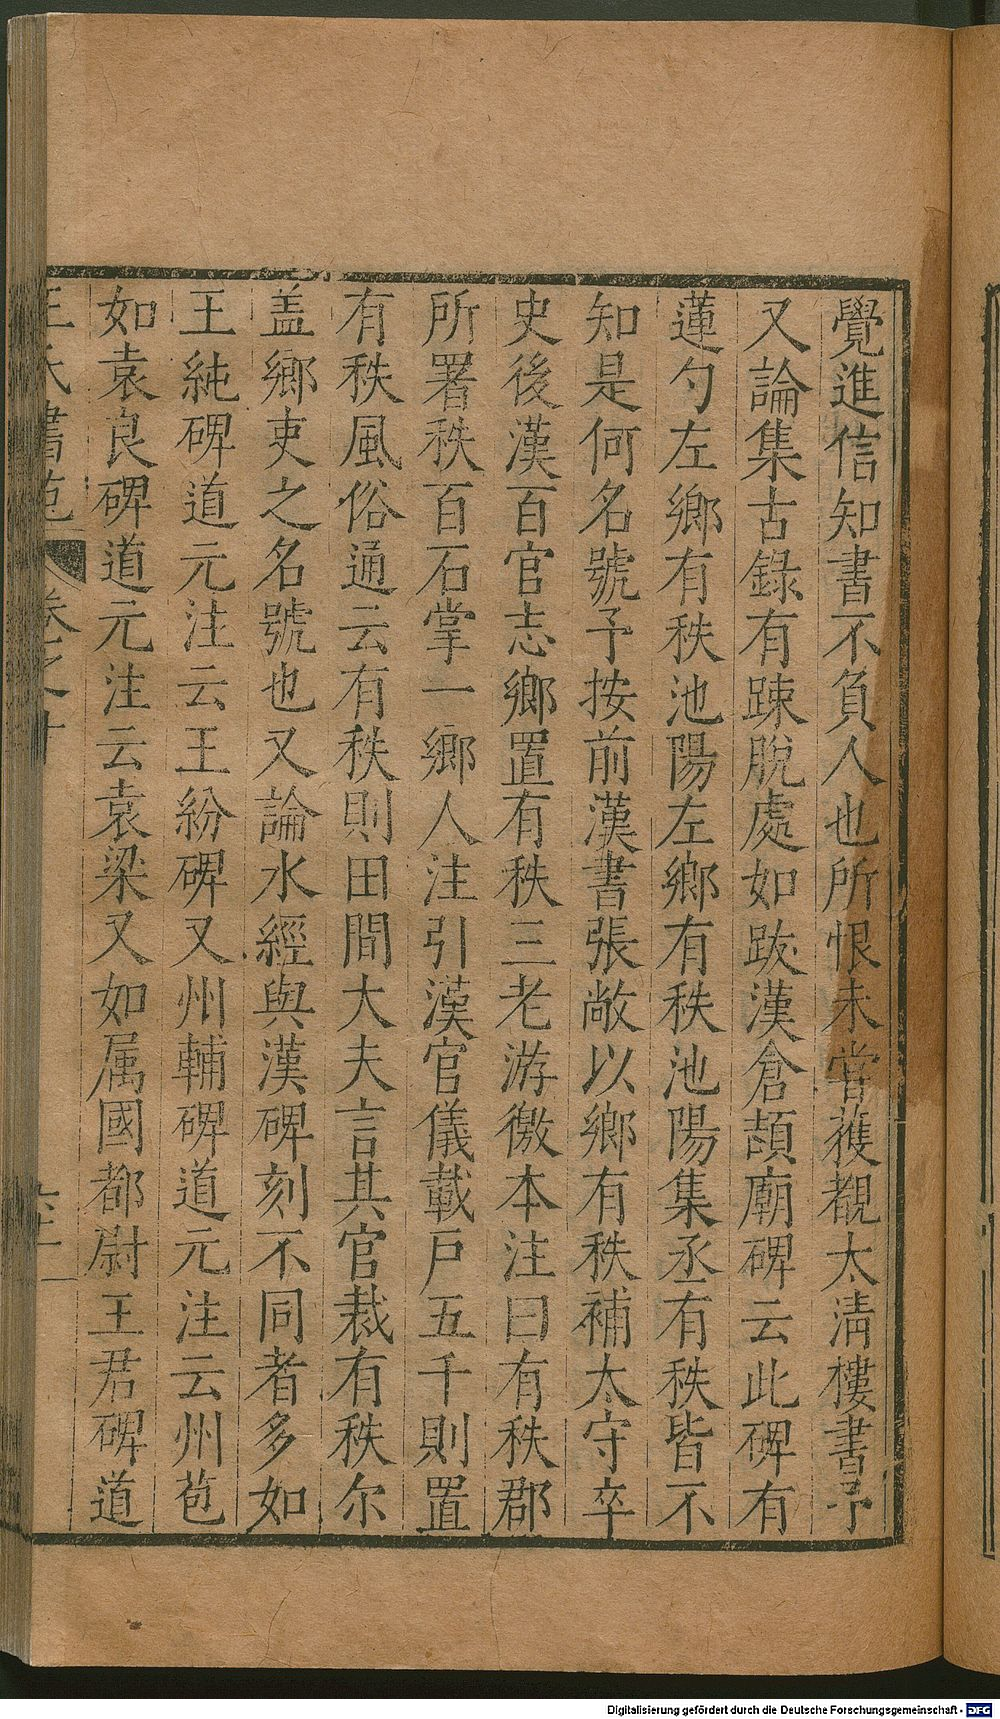 覺進信知書不負人也所恨未嘗獲覩太淸樓書予
又論集古錄有踈脫處如跋漢倉頡廟碑云此碑有
蓮勺左鄉有秩池陽左鄉有秩池陽集丞有秩皆不
知是何名號予按前漢書張敞以鄉有秩補太守卒
史後漢百官志鄉置有秩三老游徼本注曰有秩郡
所署秩百石掌一鄉人注引漢官儀載戸五千則置
有秩風俗通云有秩則田間大夫言其官裁有秩尔
盖鄉吏之名號也又論水經與漢碑刻不同者多如
王純碑道元注云王紛碑又州輔碑道元注云州苞
如袁良碑道元注云袁梁又如属國都尉王君碑道
王氏書苑 卷之十
Digitalisierung gefördert durch die Deutsche Forschungsgemeinschaft - DFG